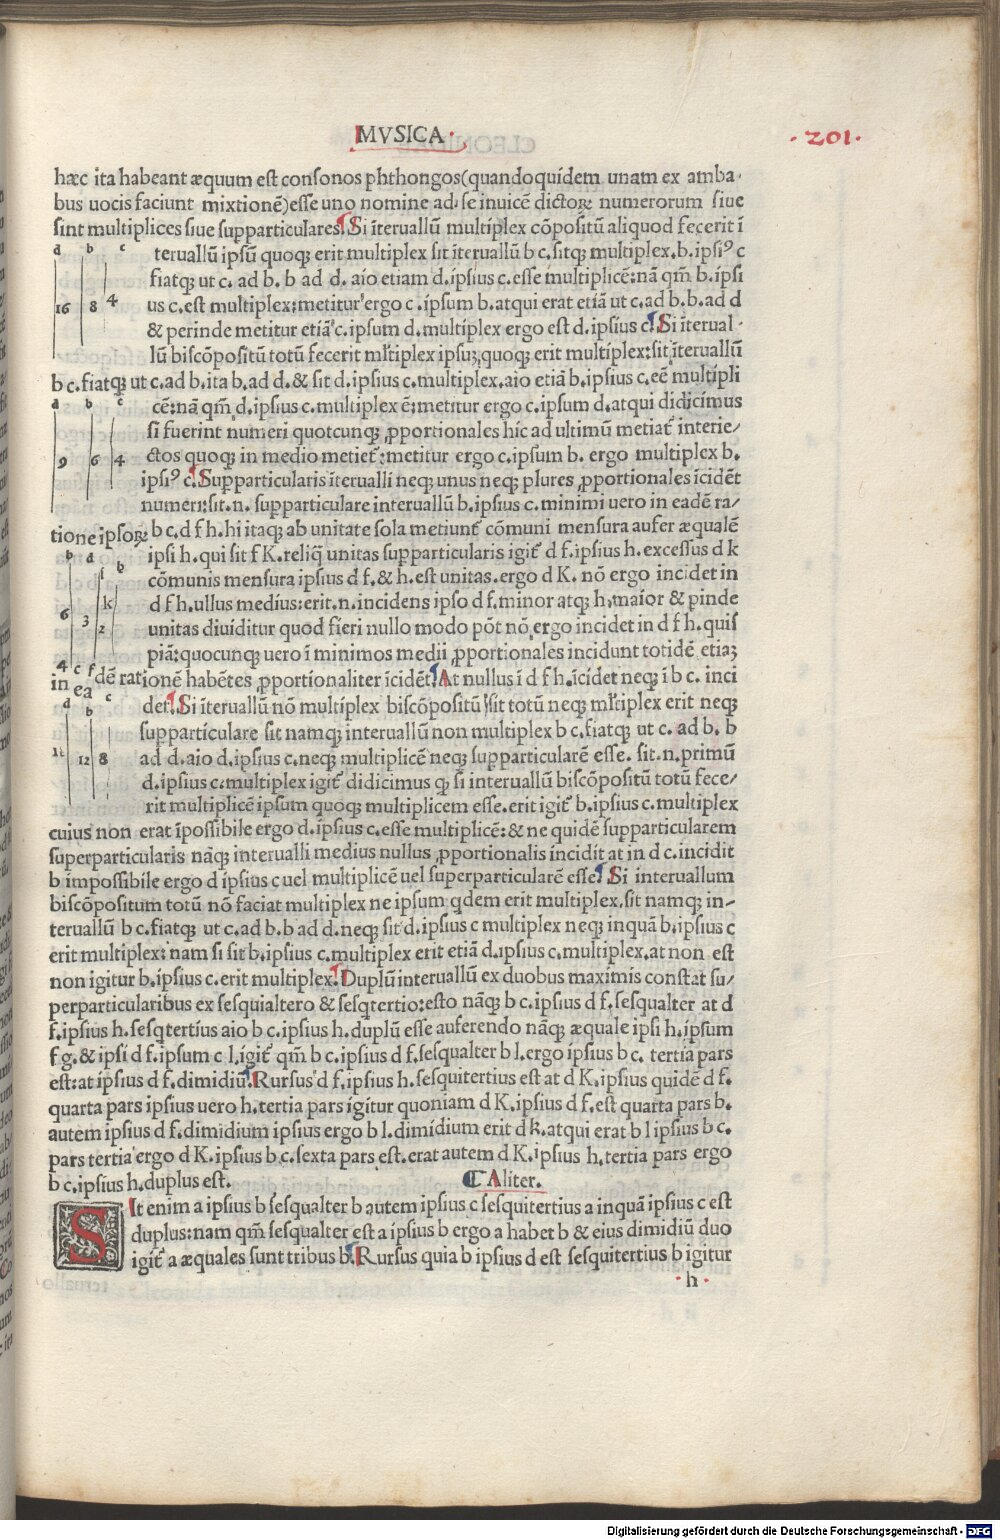 MVSICA
·201·
hæc ita habeant æquum est consonos phthongos(quandoquidem unam ex amba-
bus uocis faciunt mixtionē)esse uno nomine ad se inuicē dictoꝝ numerorum siue
sint multiplices siue supparticulares. Si īteruallū multiplex cōpositū aliquod fecerit ī
a b c
teruallū ipsū quoqꝫ erit multiplex sit īteruallū b c.sitqꝫ multiplex.b.ipsiꝰ c
fiatqꝫ ut c. ad b. b ad d. aio etiam d.ipsius c.esse multiplicē:nā qm̄ b. ipsi
16 8 4
us c.est multiplex:metitur ergo c.ipsum b.atqui erat etiā ut c.ad b.b.ad d
& perinde metitur etiā c.ipsum d.multiplex ergo est d.ipsius c. Si īterual-
lū biscōpositū totū fecerit ml̄tiplex ipsuꝫ quoqꝫ erit multiplex:sit īteruallū
b c.fiatqꝫ ut c.ad b.ita b.ad d.& sit d.ipsius c.multiplex.aio etiā b.ipsius c.eē multipli
a b c
cē:nā qm̄ d.ipsius c.multiplex ē:metitur ergo c.ipsum d.atqui didicimus
si fuerint numeri quotcunqꝫ ꝓportionales hic ad ultimū metiat̄ interie/
9 6 4
ctos quoqꝫ in medio metiet̄:metitur ergo c.ipsum b. ergo multiplex b.
ipsiꝰ c. Supparticularis īterualli neqꝫ unus neqꝫ plures ꝓportionales īcidēt
numeri:sit.n. supparticulare interuallū b.ipsius c.minimi uero in eadē ra/
tione ipsoꝝ b c.d f h.hi itaqꝫ ab unitate sola metiunt̄ cōmuni mensura aufer æqualē
b d h
ipsi h.qui sit f K.reliq̄ unitas supparticularis igit̄ d f.ipsius h.excessus d k
cōmunis mensura ipsius d f.& h.est unitas.ergo d K. nō ergo incidet in
k
d f h.ullus medius:erit.n.incidens ipso d f.minor atqꝫ h.maior & pinde
6 3 2
unitas diuiditur quod fieri nullo modo pōt nō ergo incidet in d f h.quis
piā:quocunqꝫ uero ī minimos medii ꝓportionales incidunt totidē etiaꝫ
4 c f
in eadē rationē habētes ꝓportionaliter īcidēt. At nullus ī d f h.īcidet neqꝫ ī b c. inci
d b c
det. Si īteruallū nō multiplex biscōpositū sit totū neqꝫ ml̄tiplex erit neqꝫ
supparticulare sit namqꝫ interuallū non multiplex b c.fiatqꝫ ut c. ad b. b
12 8
ad d.aio d.ipsius c.neqꝫ multiplicē neqꝫ supparticularē esse. sit.n.primū
d.ipsius c.multiplex igit̄ didicimus ꝙ si interuallū biscōpositū totū fece/
rit multiplicē ipsum quoqꝫ multiplicem esse.erit igit̄ b.ipsius c.multiplex
cuius non erat īpossibile ergo d.ipsius c.esse multiplicē:& ne quidē supparticularem
superparticularis nāqꝫ interualli medius nullus ꝓportionalis incidit at in d c.incidit
b impossibile ergo d ipsius c uel multiplicē uel superparticularē esse. Si interuallum
biscōpositum totū nō faciat multiplex ne ipsum qdem erit multiplex.sit namqꝫ in-
teruallū b c.fiatqꝫ ut c.ad b.b ad d.neqꝫ sit d.ipsius c multiplex neqꝫ inquā b.ipsius c
erit multiplex: nam si sit b.ipsius c.multiplex erit etiā d.ipsius c.multiplex.at non est
non igitur b.ipsius c.erit multiplex. Duplū interuallū ex duobus maximis constat su-
perparticularibus ex sesquialtero & sesqtertio:esto nāqꝫ b c.ipsius d f.sesqualter at d
f.ipsius h.sesqtertius aio b c.ipsius h.duplū esse auferendo nāqꝫ æquale ipsi h.ipsum
f g.& ipsi d f.ipsum c l.igit̄ qm̄ b c.ipsius d f.sesqualter b l.ergo ipsius b c. tertia pars
est:at ipsius d f.dimidiū. Rursus d f.ipsius h.sesquitertius est at d K.ipsius quidē d f.
quarta pars ipsius uero h.tertia pars igitur quoniam d K.ipsius d f.est quarta pars b.
autem ipsius d f.dimidium ipsius ergo b l.dimidium erit d k.atqui erat b l ipsius b c.
pars tertia ergo d K.ipsius b c.sexta pars est.erat autem d K.ipsius h.tertia pars ergo
b c.ipsius h.duplus est. Aliter.
SIt enim a ipsius b sesqualter b autem ipsius c sesquitertius a inquā ipsius c est
duplus:nam qm̄ sesqualter est a ipsius b ergo a habet b & eius dimidiū duo
igit̄ a æquales sunt tribus b. Rursus quia b ipsius d est sesquitertius b igitur
·h·
Digitalisierung gefördert durch die Deutsche Forschungsgemeinschaft - DFG